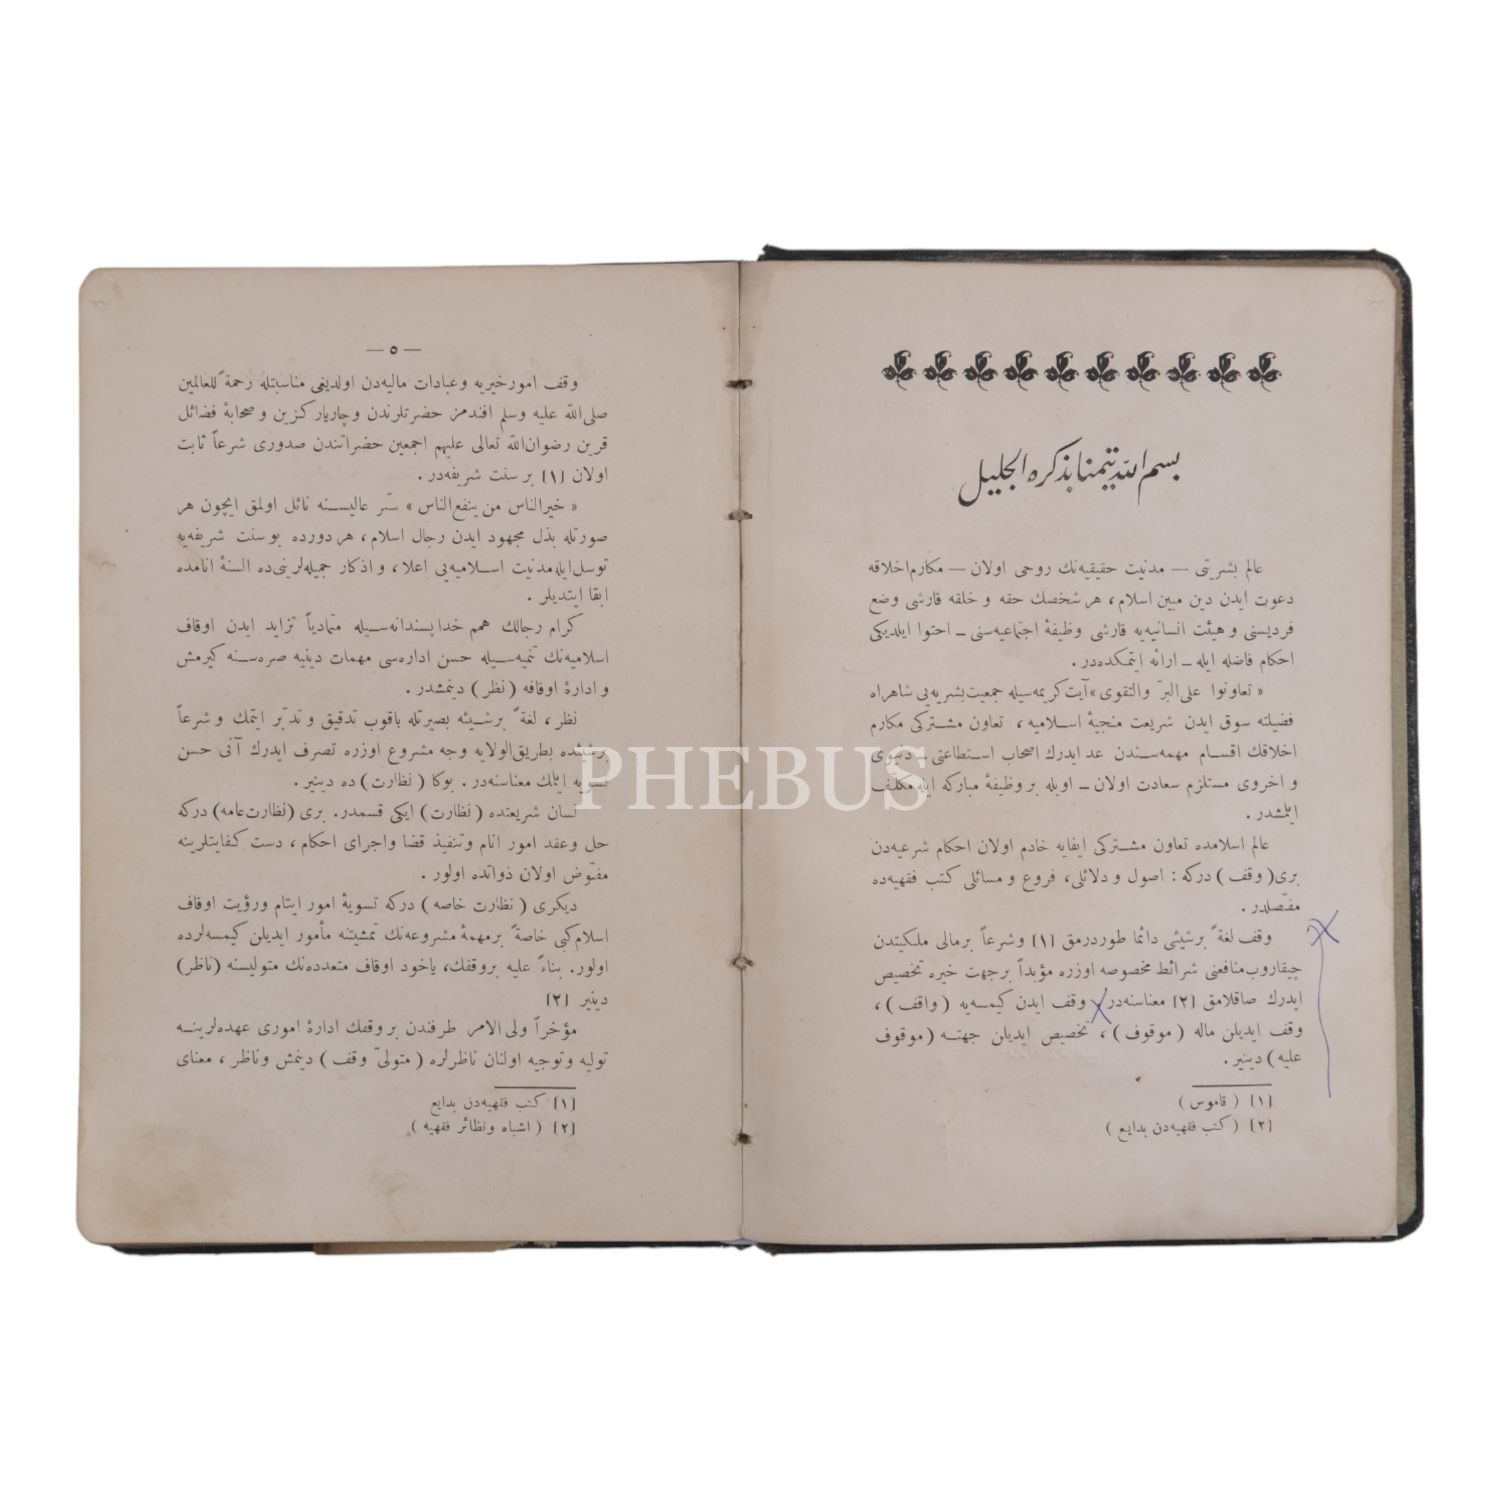 بسم اللّه تيمنا بذكره الجليل
عالم بشريتى — مدنيت حقيقيه‌نك روحى اولان — مكارم اخلاقه
دعوت ايدن دين مبين اسلام، هر شخصك حقه و خلقه قارشى وضع
فرديسنى و هيئت انسانيه‌يه قارشى وظيفۀ اجتماعيه‌سنى ــ احتوا ايلديكى
احكام فاضله ايله ــ ارائه ايتمكده‌در.
« تعاونوا على البرّ والتقوى » آيت كريمه‌سيله جمعيت بشريه‌يى شاهراه
فضيلته سوق ايدن شريعت منجيۀ اسلاميه، تعاون مشتركى مكارم
اخلاقك اقسام مهمه‌سندن عد ايدرك اصحاب استطاعتى ــ دنيوى
و اخروى مستلزم سعادت اولان ــ اويله بر وظيفۀ مباركه ايله مكلف
ايلمشدر.
عالم اسلامده تعاون مشتركى ايفايه خادم اولان احكام شرعيه‌دن
برى (وقف) دركه : اصول و دلائلى، فروع و مسائلى كتب فقهيه‌ده
مفصّلدر.
وقف لغةً برشيئى دائما طوردرمق [١] وشرعاً برمالى ملكيتدن
چيقاروب منافعنى شرائط مخصوصه اوزره مؤبداً برجهت خيره تخصيص
ايدرك صاقلامق [٢] معناسنه‌در. وقف ايدن كيمسه‌يه (واقف)،
وقف ايديلن ماله (موقوف)، تخصيص ايديلن جهتــه (موقوف
عليه) دينير.
[١] (قاموس)
[٢] (كتب فقهيه‌دن بدايع)
— ٥ —
وقف امور خيريه و عبادات ماليه‌دن اولديغى مناسبتله رحمةً للعالمين
صلى اللّه عليه وسلم افندمز حضرتلرندن و چاريار كزين و صحابۀ فضائل
قرين رضوان اللّه تعالى عليهم اجمعين حضراتندن صدورى شرعاً ثابت
اولان [١] بر سنت شريفه‌در.
« خيرالناس من ينفع الناس » سّر عاليســنه نائل اولمق ايچون هر
صورتله بذل مجهود ايدن رجال اسلام، هر دورده بو سنت شريفه‌يه
توسل ايله مدنيت اســلاميه‌يى اعلا، و اذكار جميله‌لرينى ده السنۀ انامده
ابقا ايتديلر.
كرام رجالك همم خدا پسندانه‌ســيله متمادياً تزايد ايدن اوقاف
اسلاميه‌نك تنميه‌ســيله حسن اداره‌سى مهمات دينيه صره‌سنه كيرمش
و ادارۀ اوقافه (نظر) دينمشدر.
نظر، لغةً برشــيئه بصيرتله باقوب تدقيق و تدبّر ايتمك و شرعاً
برشيئده بطريق الولايه وجه مشروع اوزره تصرف ايدرك آنى حسن
تسويه ايتمك معناسنه‌در. بوكا (نظارت) ده دينير.
لسان شريعتده (نظارت) ايكى قسمدر. برى (نظارت عامه) دركه
حل وعقد امور انام و تنفيذ قضا واجراى احكام، دست كفايتلرينه
مفوّض اولان ذواتده اولور.
ديكرى (نظارت خاصه) دركه تسويۀ امور ايتام ورؤيت اوقاف
اسلام كبى خاصةً برمهمۀ مشروعه‌نك تمشيتنه مأمور ايديلن كيمسه‌لرده
اولور. بناءً عليه بروقفك، ياخود اوقاف متعدده‌نك متوليسنه (ناظر)
دينير [٢]
مؤخراً ولى الامر طرفندن بروقفك ادارۀ امورى عهده‌لرينــه
توليه وتوجيه اولنان ناظرلره (متولىّ وقف) دينمش وناظر، معناى
[١] كتب فقهيه‌دن بدايع
[٢] (اشباه ونظائر فقهيه)
PHEBUS